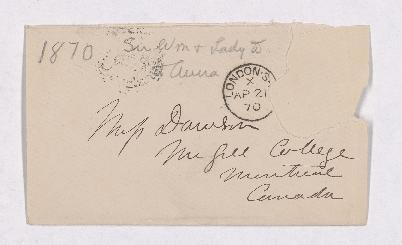 1870
Sir Wm & Lady D
Anna
LONDON.S.
X
AP 21
70
Miss Dawson
McGill College
Montreal
Canada